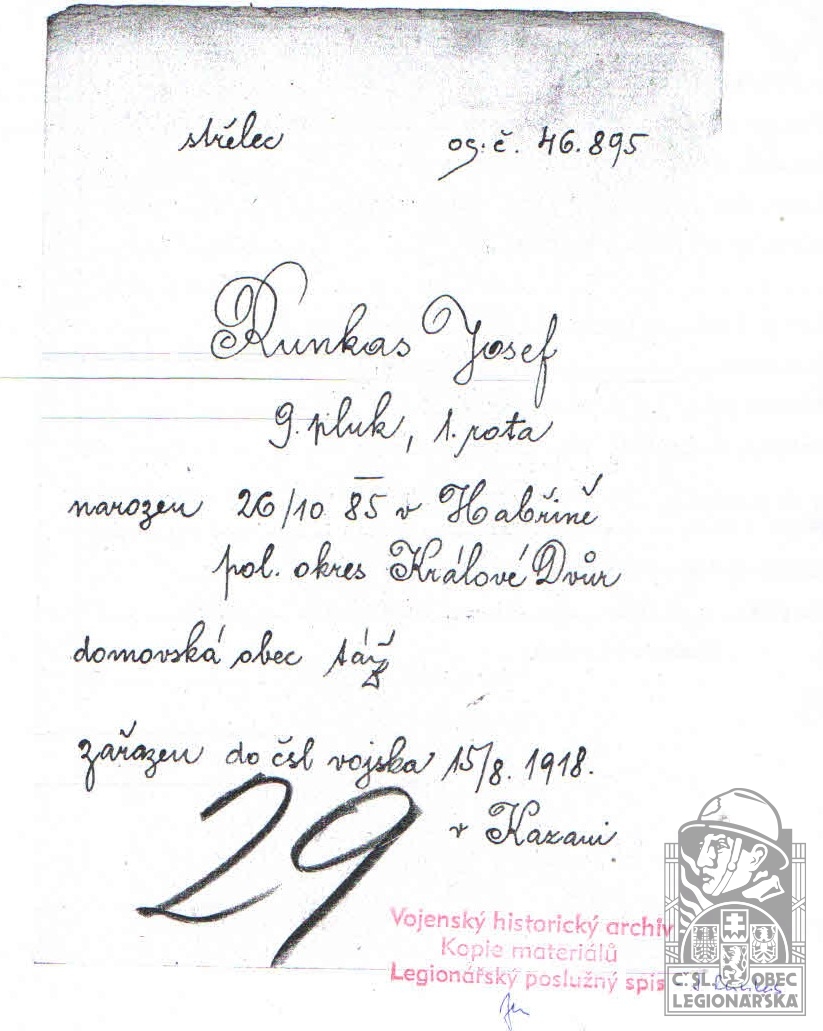 střelec os. č. 46.895
Runkas Josef
9. pluk, 1. rota
narozen 26/10 85 v Habřině
pol. okres Králové Dvůr
domovská obec táž
zařazen do čsl vojska 15/8. 1918.
v Kazani
29
Vojenský historický archiv
Kopie materiálů
Legionářský poslužný spis
ČSL. OBEC
LEGIONÁŘSKÁ